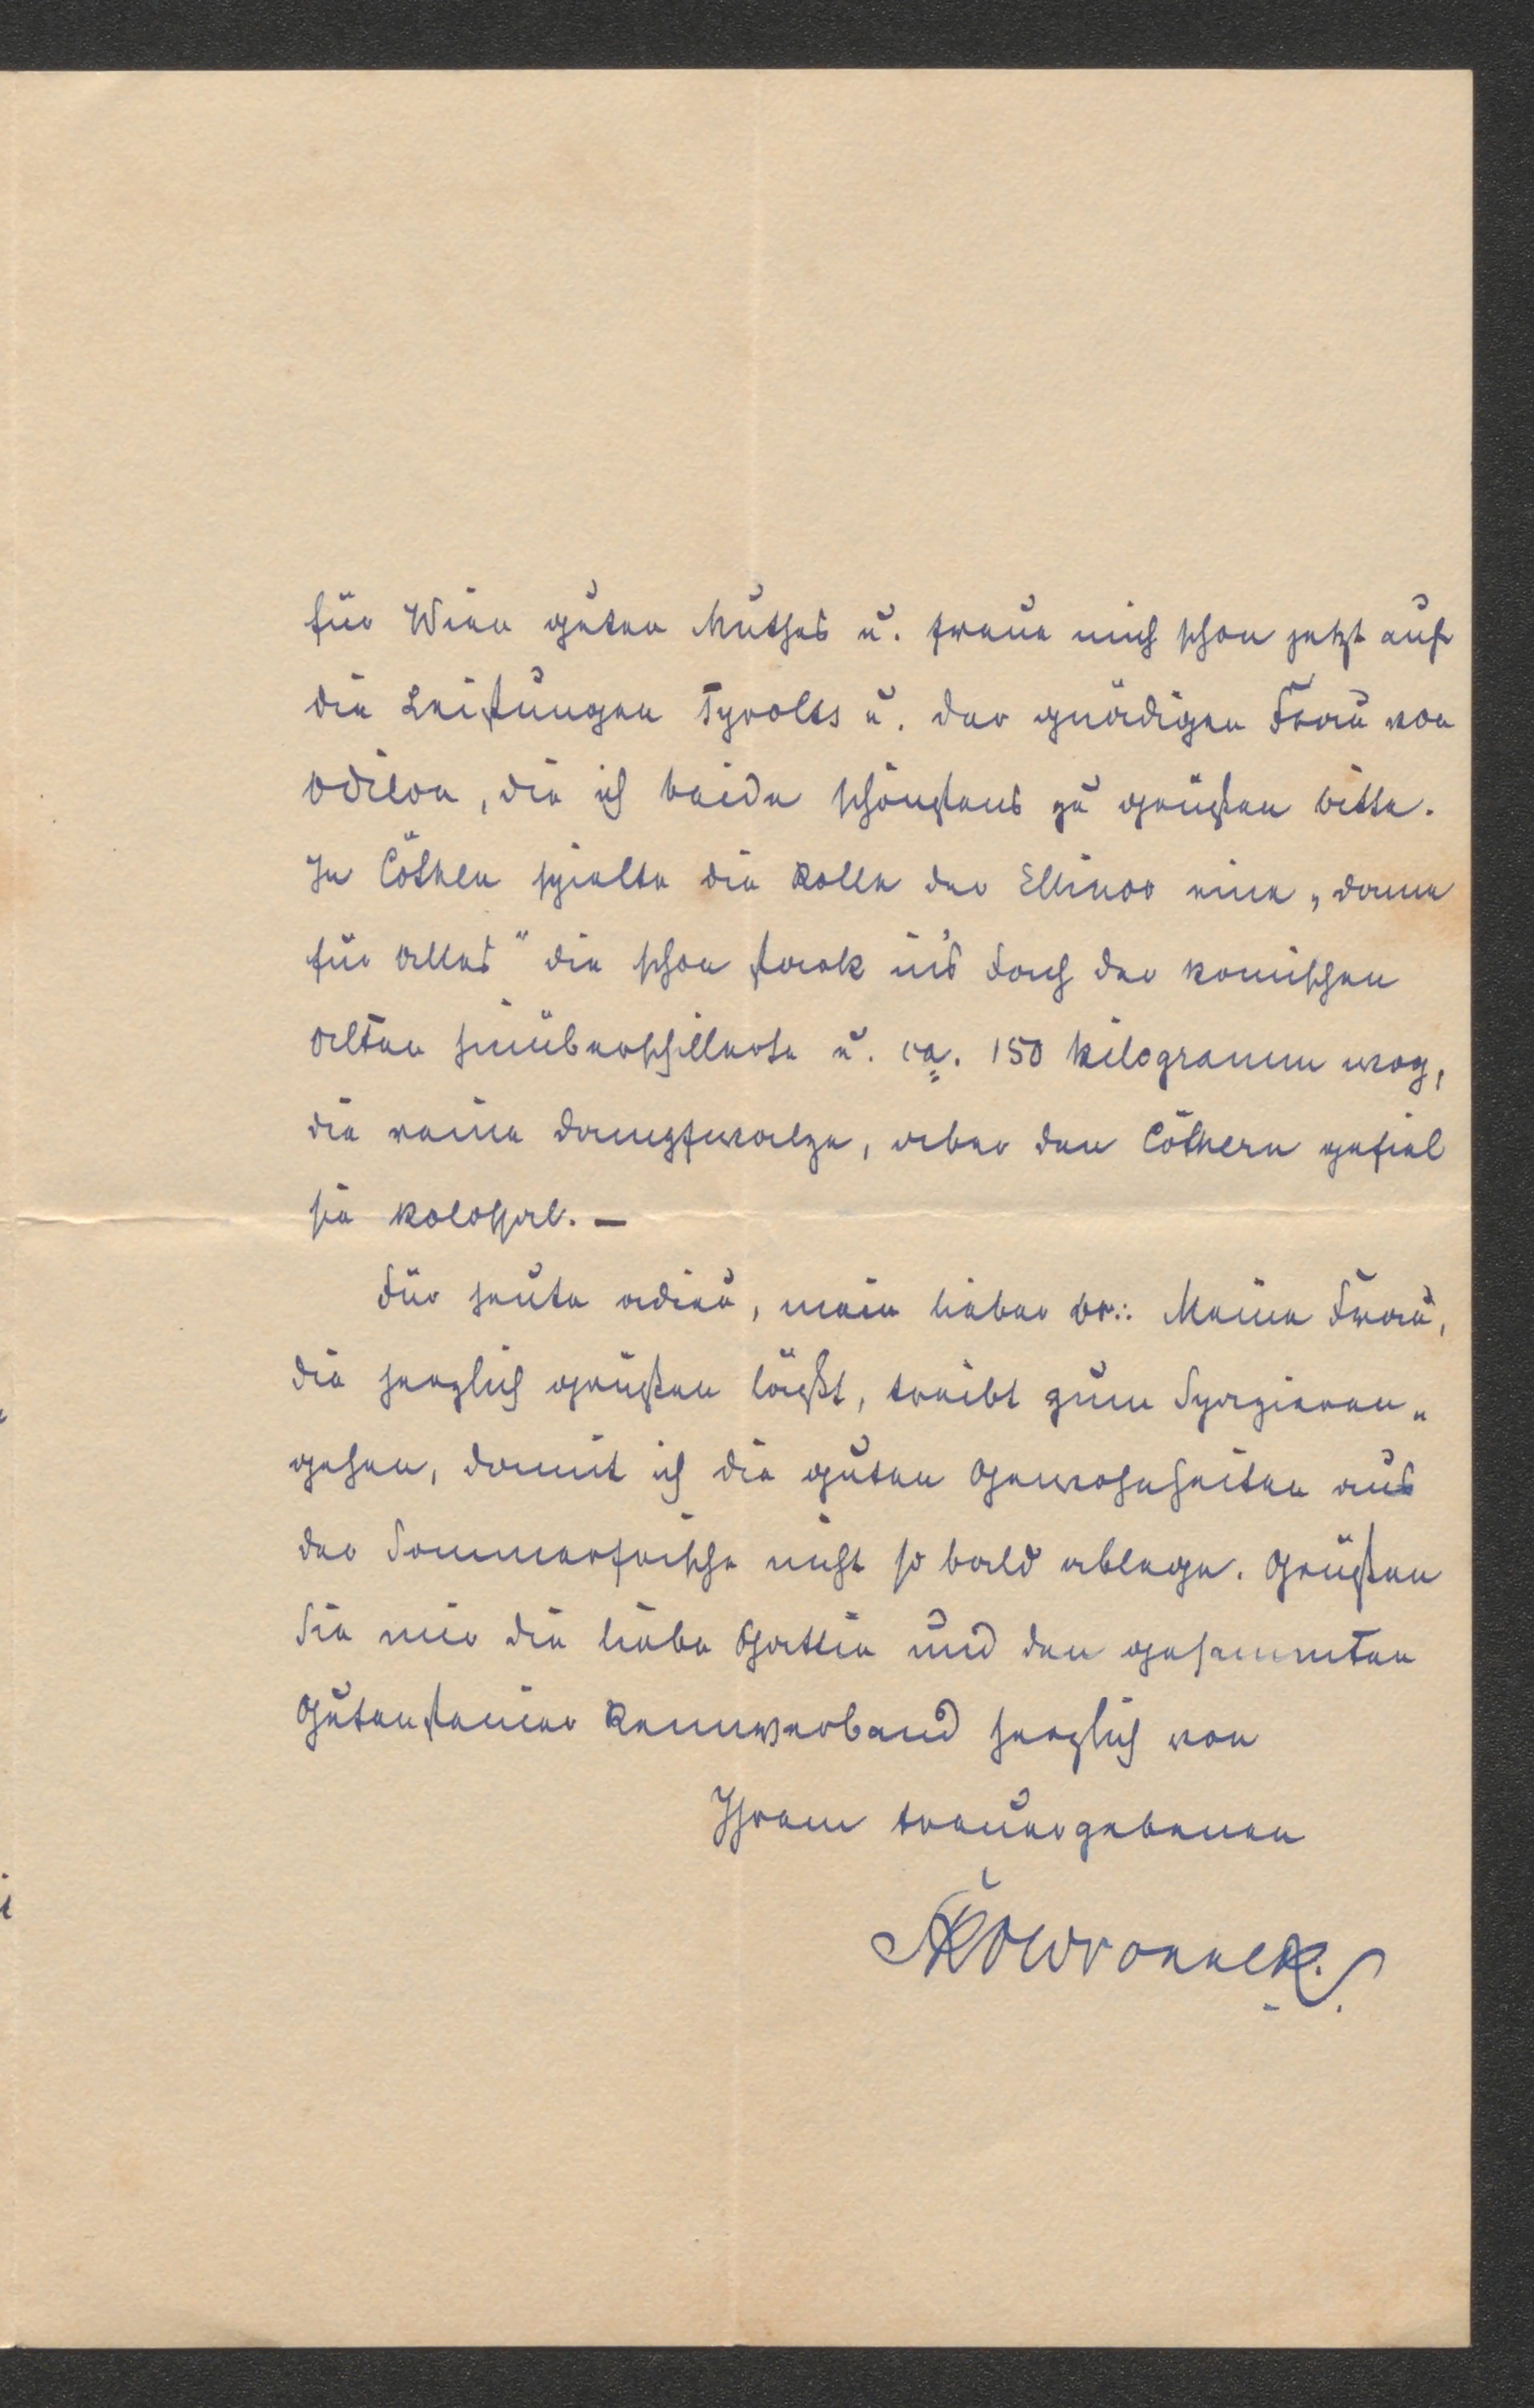 für Wien guten Muthes u. freue mich schon jetzt auf
die Leistungen Tyrolts u. der gnädigen Frau von
Odilon, die ich beide schönstens zu grüßen bitte.
In Cöthen spielte die Rolle der Ellinor eine „Dame
für Alles“ die schon stark in's Fach der komischen
Alten hinüberschillerte u. ca. 150 Kilogramm wog,
die reine Dampfwalze, aber den Cöthern gefiel
sie kolossal. —
Für heute adieu, mein lieber Br.: Meine Frau,
die herzlich grüßen läßt, treibt zum Spazieren„
gehen, damit ich die guten Gewohnheiten aus
der Sommerfrische nicht so bald ablege. Grüßen
Sie mir die liebe Gattin und den gesammten
Gutensteiner Rennverband herzlich von
Ihrem treuergebenen
Skowronnek.